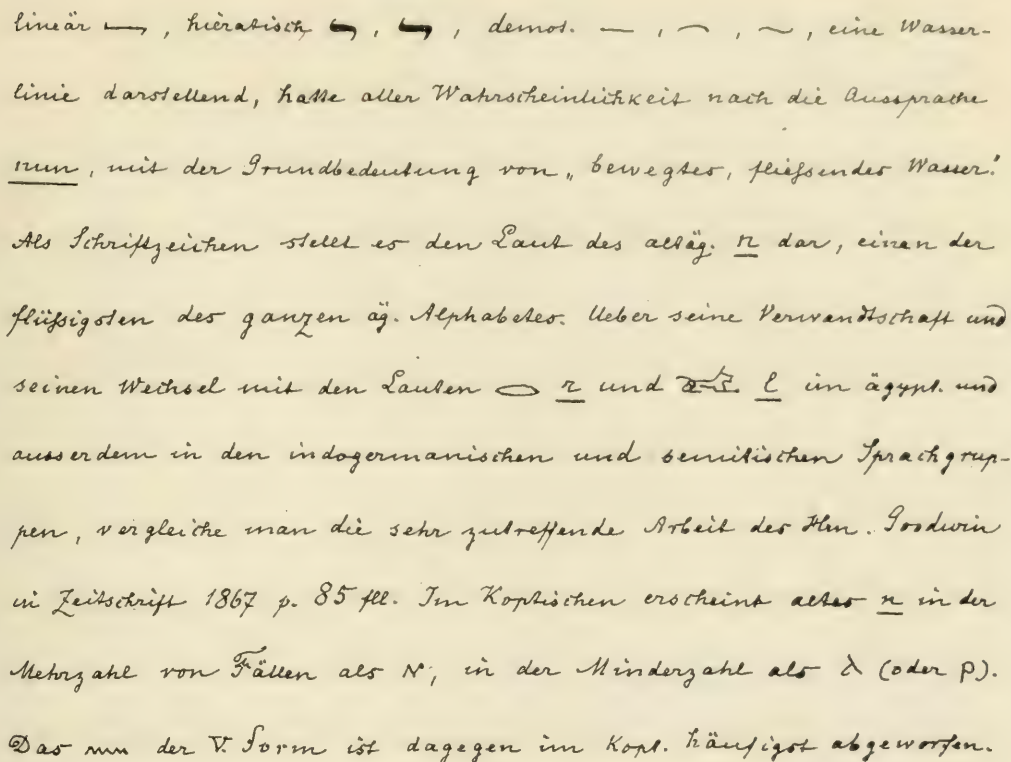 lineär 𓈖, hieratisch, demot. —, ⌒, ~, eine Wasser-
linie darstellend, hatte aller Wahrscheinlichkeit nach die Aussprache
nun, mit der Grundbedeutung von „bewegtes, fließendes Wasser."
Als Schriftzeichen stellt es den Laut des altäg. n dar, einen der
flüßigsten des ganzen äg. Alphabetes. Ueber seine Verwandtschaft und
seinen Wechsel mit den Lauten 𓂋 r und 𓃭 l im ägypt. und
ausserdem in den indogermanischen und semitischen Sprachgrup-
pen, vergleiche man die sehr zutreffende Arbeit des Hrn. Goodwin
in Zeitschrift 1867 p. 85 fll. Im Koptischen erscheint altes n in der
Mehrzahl von Fällen als ⲛ, in der Minderzahl als ⲗ (oder ⲣ).
Das 𓈖 der V. Form ist dagegen im Kopt. häufigst abgeworfen.